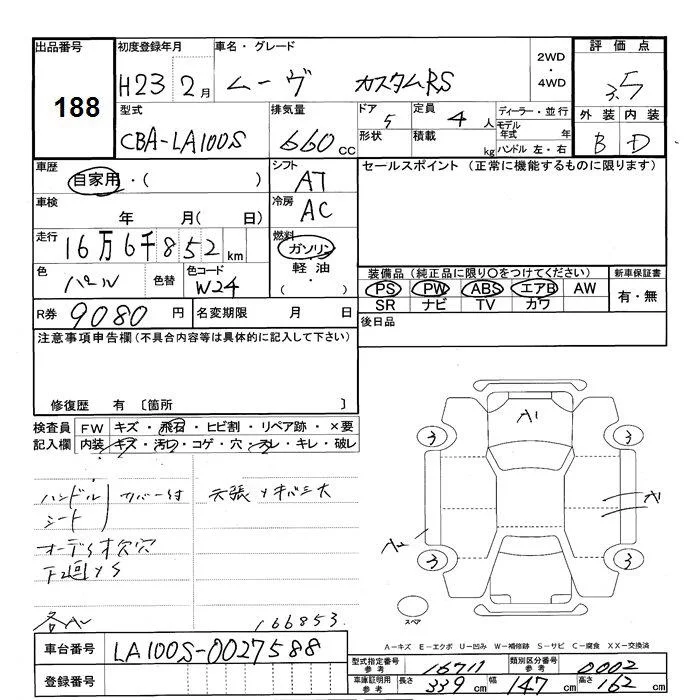 出品番号
188
初度登録年月
H23 2月
車名・グレード
ムーヴ カスタムRS
2WD
・
4WD
評価点
3.5
型式
CBA-LA100S
排気量
660cc
ドア
5
定員
4人
形状
積載
kg
ディーラー・並行
モデル年式 年
ハンドル 左・右
外装 内装
B D
車歴
自家用・( )
シフト
AT
セールスポイント (正常に機能するものに限ります)
車検
年 月( 日)
冷房
AC
走行
16万6千852km
燃料
ガソリン
・
軽油
( ・ )
色
パール
色替
色コード
W24
装備品 (純正品に限り○をつけてください)
PS PW ABS エアB AW
SR ナビ TV カワ
新車保証書
有・無
R券
9080円
名変期限 月 日
後日品
注意事項申告欄 (不具合内容等は具体的に記入して下さい)
修復歴 有 〔箇所 〕
検査員記入欄
FW キズ・飛石・ヒビ割・リペア跡・×要
内装 キズ・汚り・コゲ・穴・スレ・キレ・破レ
ハンドル
シート
カバー付
天張
オーディオ欠穴
166853
A1
3 3
A1
A2
3 3
スペア
A-キズ E-エクボ U-凹み W-補修跡 S-サビ C-腐食 XX-交換済
車台番号
LA100S-0027588
登録番号
型式指定番号
参考
16711
類別区分番号
参考
0002
車庫証明用
参考
長さ
339cm
幅
147cm
高さ
162cm